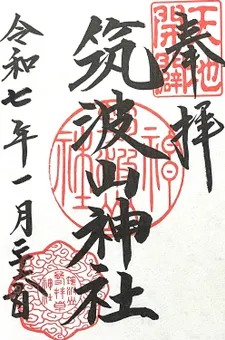 奉拝
天地開闢
筑波山神社
令和七年一月二六日